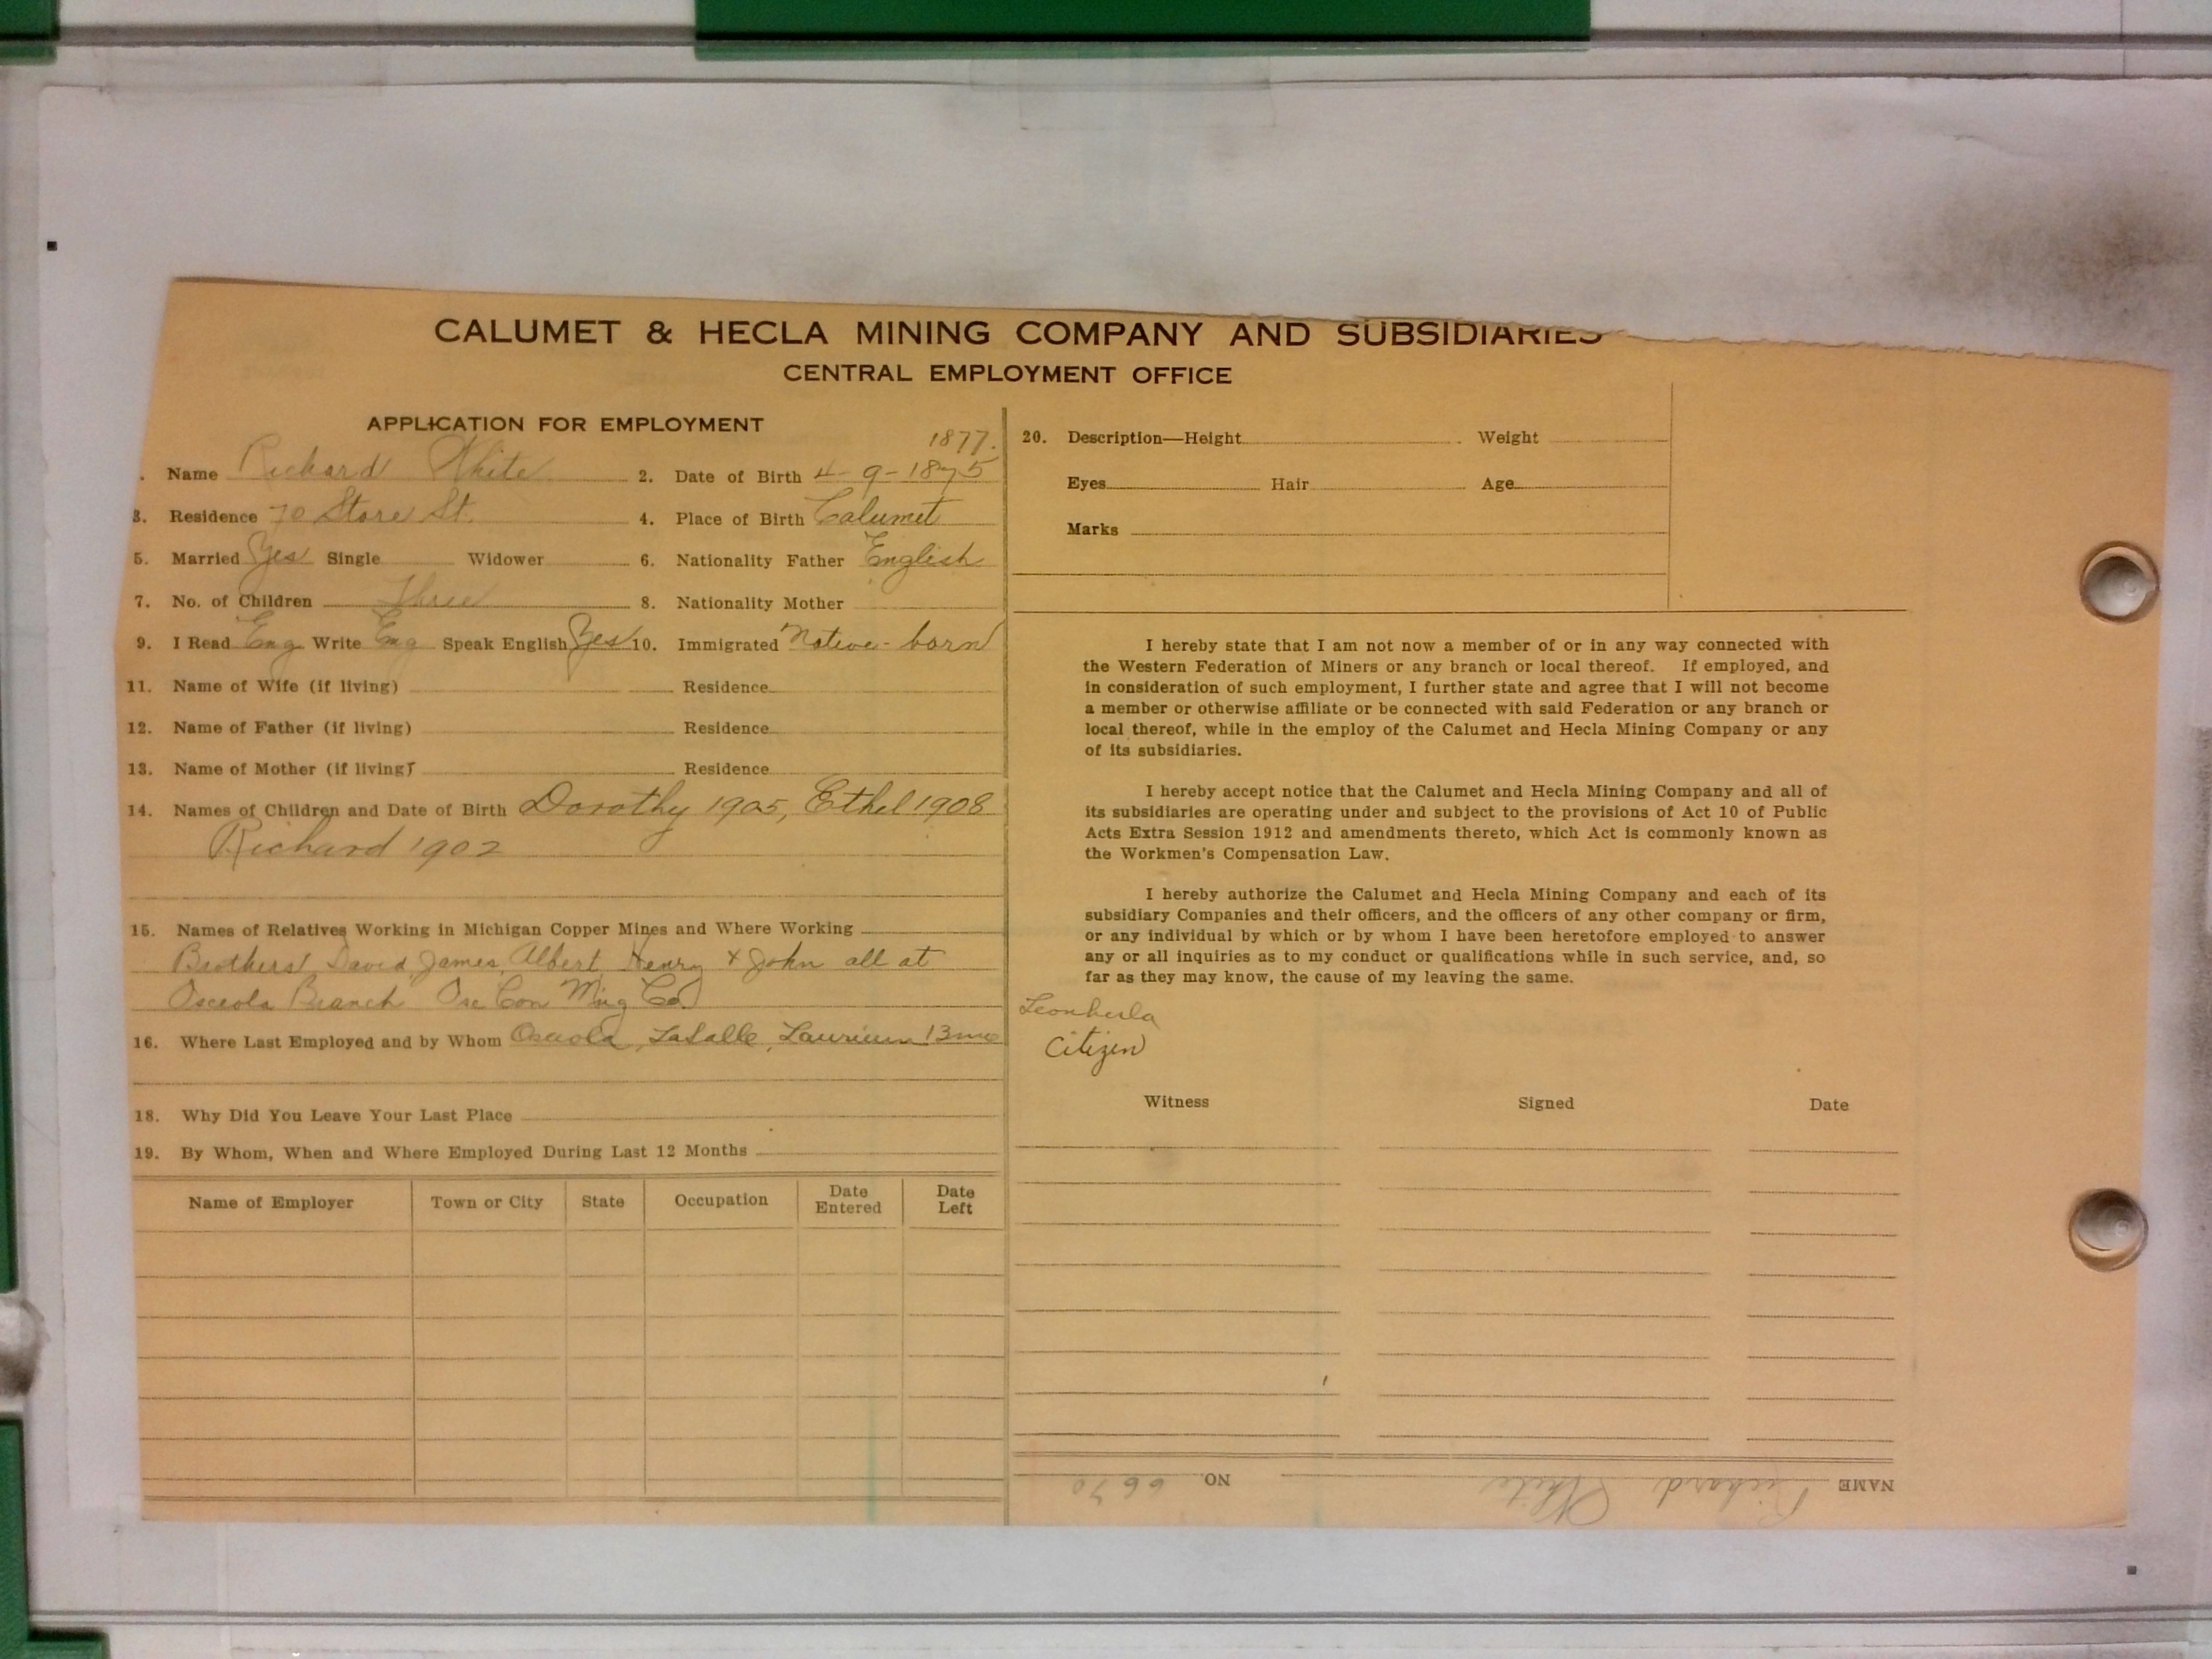 CALUMET & HECLA MINING COMPANY AND SUBSIDIARIES
CENTRAL EMPLOYMENT OFFICE
APPLICATION FOR EMPLOYMENT
1877.
. Name Richard White 2. Date of Birth 4-9-1875
3. Residence 70 Store St. 4. Place of Birth Calumet
5. Married Yes Single Widower 6. Nationality Father English
7. No. of Children Three 8. Nationality Mother
9. I Read Eng. Write Eng Speak English Yes 10. Immigrated Native-born
11. Name of Wife (if living) Residence
12. Name of Father (if living) Residence
13. Name of Mother (if living) Residence
14. Names of Children and Date of Birth Dorothy 1905, Ethel 1908
Richard 1902
15. Names of Relatives Working in Michigan Copper Mines and Where Working
Brothers David, James, Albert, Henry & John all at
Osceola Branch Osc Con M'ng Co.
16. Where Last Employed and by Whom Osceola, LaSalle, Laurium 13mo
18. Why Did You Leave Your Last Place
19. By Whom, When and Where Employed During Last 12 Months
Name of Employer Town or City State Occupation Date Entered Date Left
20. Description—Height Weight
Eyes Hair Age
Marks
I hereby state that I am not now a member of or in any way connected with
the Western Federation of Miners or any branch or local thereof. If employed, and
in consideration of such employment, I further state and agree that I will not become
a member or otherwise affiliate or be connected with said Federation or any branch or
local thereof, while in the employ of the Calumet and Hecla Mining Company or any
of its subsidiaries.
I hereby accept notice that the Calumet and Hecla Mining Company and all of
its subsidiaries are operating under and subject to the provisions of Act 10 of Public
Acts Extra Session 1912 and amendments thereto, which Act is commonly known as
the Workmen's Compensation Law.
I hereby authorize the Calumet and Hecla Mining Company and each of its
subsidiary Companies and their officers, and the officers of any other company or firm,
or any individual by which or by whom I have been heretofore employed to answer
any or all inquiries as to my conduct or qualifications while in such service, and, so
far as they may know, the cause of my leaving the same.
Citizen
Witness Signed Date
NAME Richard White NO. 6670